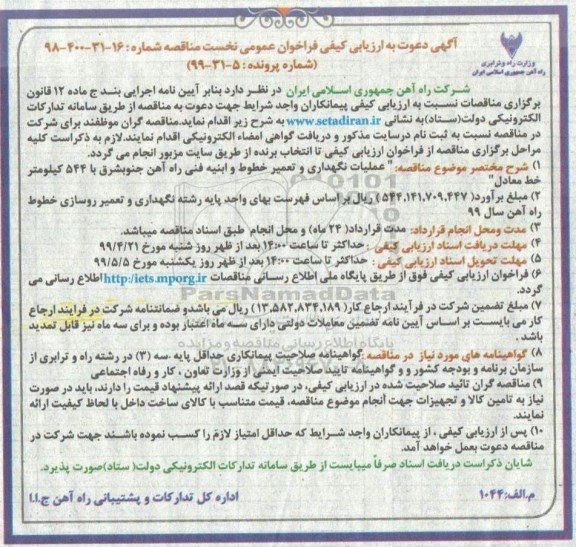 آگهی دعوت به ارزیابی کیفی فراخوان عمومی نخست مناقصه شماره: ۱۶-۳۱-۴۰۰-۹۸
(شماره پرونده: ۵-۳۱-۹۹)
وزارت راه و ترابری
راه آهن جمهوری اسلامی ایران
شرکت راه آهن جمهوری اسلامی ایران در نظر دارد بنابر آیین نامه اجرایی بند ج ماده ۱۲ قانون
برگزاری مناقصات نسبت به ارزیابی کیفی پیمانکاران واجد شرایط جهت دعوت به مناقصه از طریق سامانه تدارکات
الکترونیکی دولت(ستاد)به نشانی www.setadiran.ir به شرح زیر اقدام نماید.مناقصه گران موظفند برای شرکت
در مناقصه نسبت به ثبت نام درسایت مذکور و دریافت گواهی امضاء الکترونیکی اقدام نمایند.لازم به ذکراست کلیه
مراحل برگزاری مناقصه از فراخوان ارزیابی کیفی تا انتخاب برنده از طریق سایت مزبور انجام می گردد.
۱) شرح مختصر موضوع مناقصه: " عملیات نگهداری و تعمیر خطوط و ابنیه فنی راه آهن جنوبشرق با ۵۴۴ کیلومتر
خط معادل"
۲) مبلغ برآورد( ۵۴۴،۱۴۱،۷۰۹،۴۴۷ ) ریال بر اساس فهرست بهای واحد پایه رشته نگهداری و تعمیر روسازی خطوط
راه آهن سال ۹۹
۳) مدت ومحل انجام قرارداد: مدت قرارداد( ۲۴ ماه) و محل انجام طبق اسناد مناقصه میباشد.
۴) مهلت دریافت اسناد ارزیابی کیفی : حداکثر تا ساعت ۱۴:۰۰ بعد از ظهر روز شنبه مورخ ۹۹/۴/۲۱
۵) مهلت تحویل اسناد ارزیابی کیفی : حداکثر تا ساعت ۱۴:۰۰ بعد از ظهر روز یکشنبه مورخ ۹۹/۵/۵
۶) فراخوان ارزیابی کیفی فوق از طریق پایگاه ملی اطلاع رسانی مناقصات http:/iets.mporg.ir اطلاع رسانی می
گردد.
ParsNamadData
پایگاه اطلاع رسانی مناقصه و مزایده
۷) مبلغ تضمین شرکت در فرآیند ارجاع کار( ۱۳،۵۸۲،۸۳۴،۱۸۹ ) ریال می باشدو ضمانتنامه شرکت در فرایند ارجاع
کار می بایست بر اساس آیین نامه تضمین معاملات دولتی دارای سه ماه اعتبار بوده و برای سه ماه نیز قابل تمدید
باشد .
۸) گواهینامه های مورد نیاز در مناقصه:گواهینامه صلاحیت پیمانکاری حداقل پایه -سه (۳) در رشته راه و ترابری از
سازمان برنامه و بودجه کشور و و گواهینامه تایید صلاحیت ایمنی از وزارت تعاون ، کار و رفاه اجتماعی
۹) مناقصه گران تائید صلاحیت شده در ارزیابی کیفی، در صورتیکه قصد ارائه پیشنهاد قیمت را دارند، باید در صورت
نیاز به تامین کالا و تجهیزات جهت انجام موضوع مناقصه، قیمت متناسب با کالای ساخت داخل با لحاظ کیفیت ارائه
نمایند.
۱۰) پس از ارزیابی کیفی ، از پیمانکاران واجد شرایط که حداقل امتیاز لازم را کسب نموده باشند جهت شرکت در
مناقصه دعوت بعمل خواهد آمد.
شایان ذکراست دریافت اسناد صرفاً میبایست از طریق سامانه تدارکات الکترونیکی دولت( ستاد)صورت پذیرد.
م.الف:۱۰۴۴
اداره کل تدارکات و پشتیبانی راه آهن ج.ا.ا